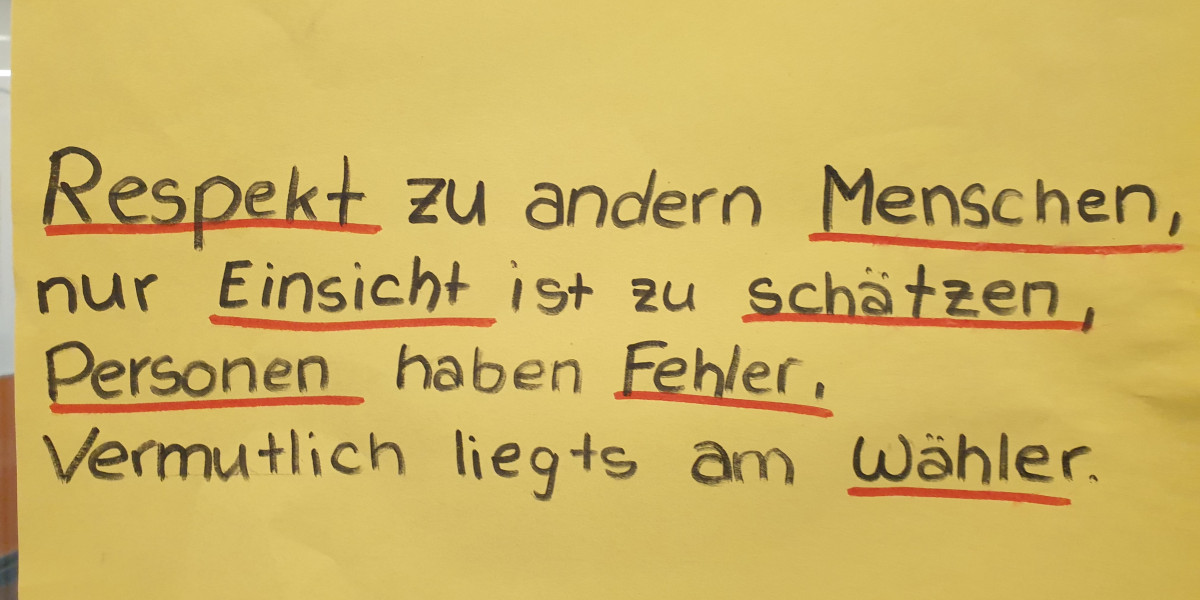 Respekt zu andern Menschen,
nur Einsicht ist zu schätzen,
Personen haben Fehler,
Vermutlich liegts am Wähler.